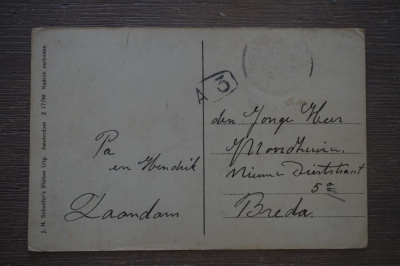 J. H. Schaefer's Platino Uitg. Amsterdam Z 17/19 Nadruk verboden
A 3
Pa
en Hendrik
Zaandam
den Jonge Heer
Noordhuin
Nieuwe
5 a
Breda.